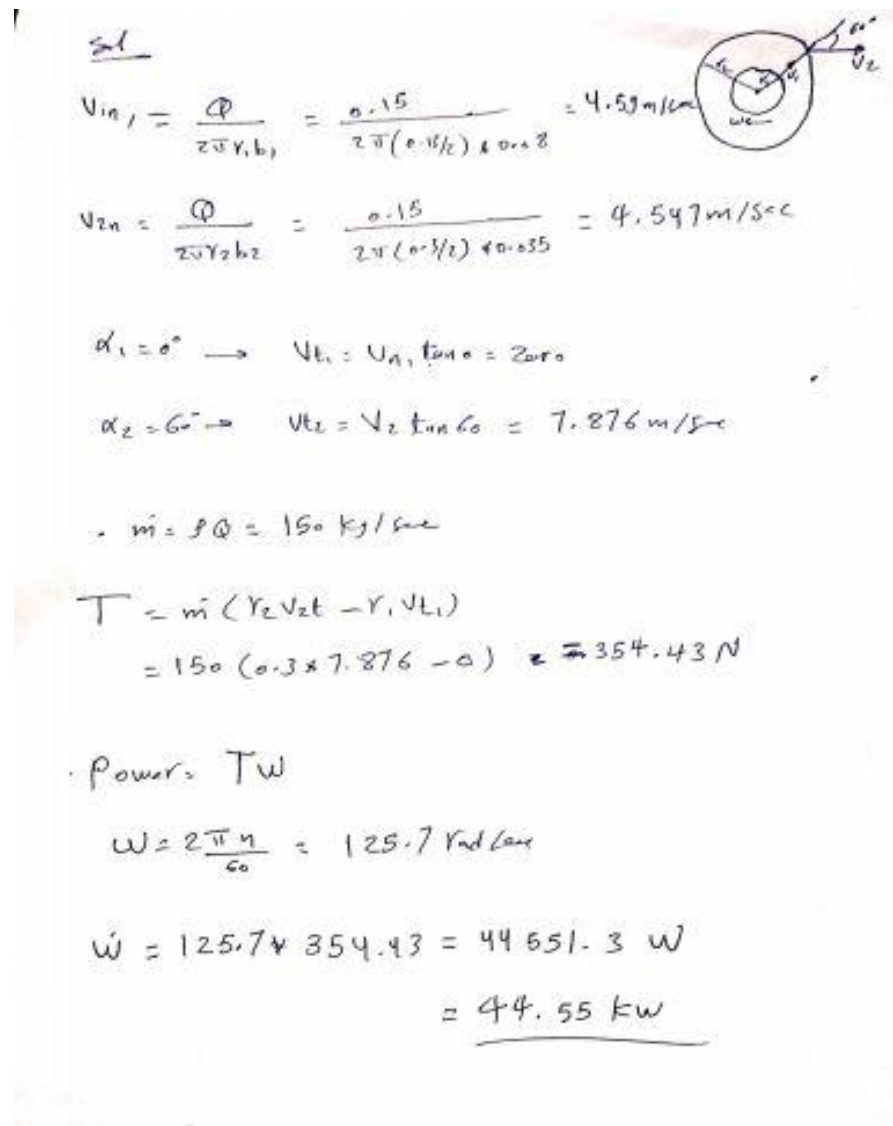 Sol
V1n, = Q / 2πr1b1 = 0.15 / 2π(0.13/2) * 0.08 = 4.59 m/sec
V2n = Q / 2πr2b2 = 0.15 / 2π(0.3/2) * 0.035 = 4.547 m/sec
60°
V2
α1 = 0° → Vt1 = Vn1 tan 0 = Zero
α2 = 60° → Vt2 = V2 tan 60 = 7.876 m/sec
. ṁ = ρQ = 150 kg/sec
T = ṁ (r2 V2t - r1 Vt1)
= 150 (0.3 * 7.876 - 0) = 354.43 N
. Power = Tω
ω = 2πn / 60 = 125.7 rad/sec
ẇ = 125.7 * 354.43 = 44551.3 W
= 44.55 kw